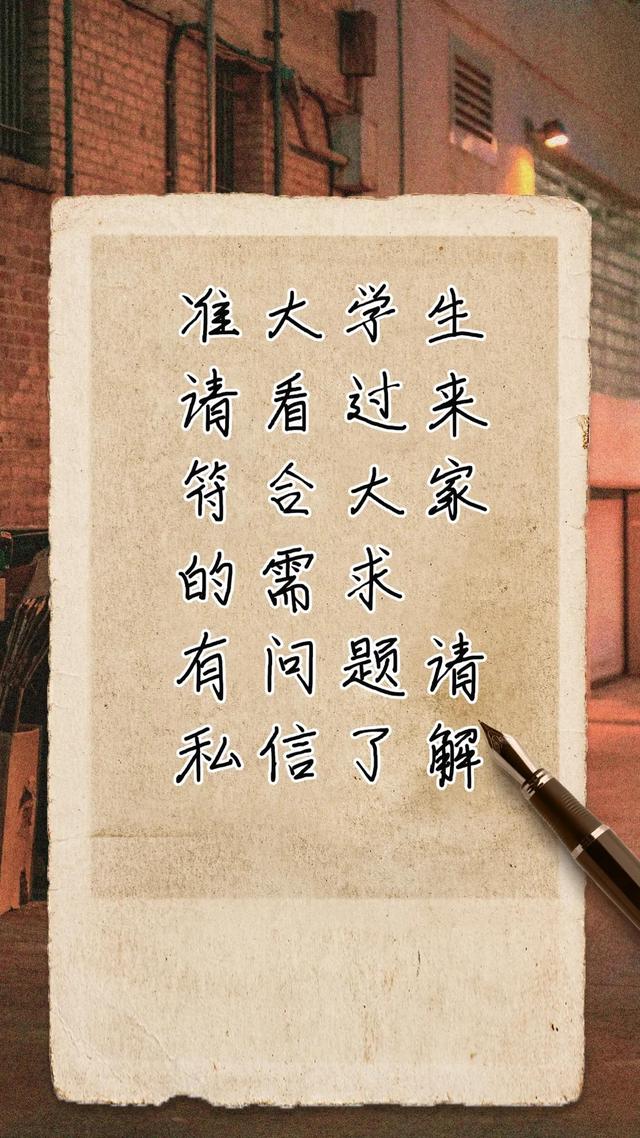 准大学生
请看过来
符合大家
的需求
有问题请
私信了解